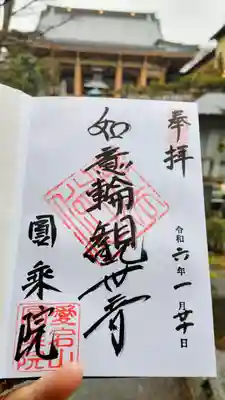 奉拝
令和六年一月廿日
如意輪観世音
圓乗院
愛宕山
圓乗院